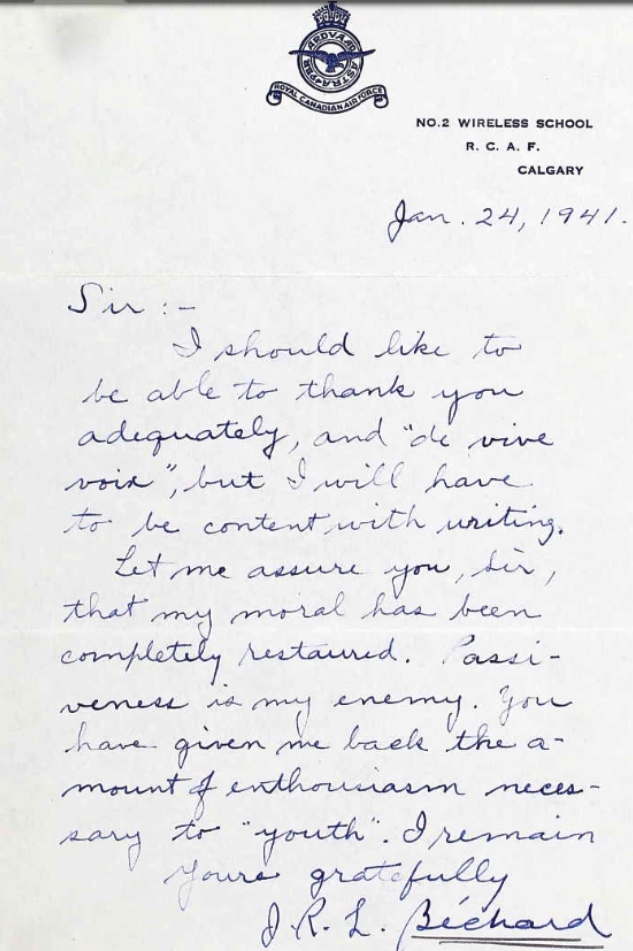 PER ARDUA AD ASTRA
ROYAL CANADIAN AIR FORCE
NO.2 WIRELESS SCHOOL
R. C. A. F.
CALGARY
Jan. 24, 1941.
Sir :-
I should like to
be able to thank you
adequately, and "de vive
voix", but I will have
to be content with writing.
Let me assure you, Sir,
that my moral has been
completely restaured. Passi-
veness is my enemy. You
have given me back the a-
mount of enthousiasm neces-
sary to "youth". I remain
Yours gratefully
J. R. L. Béchard